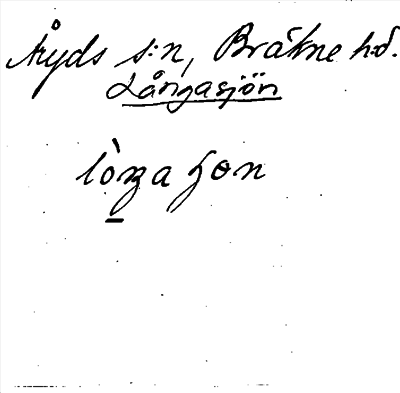 Åryds s:n, Bräkne h:d.
Långasjön
lòŋa ɧөn